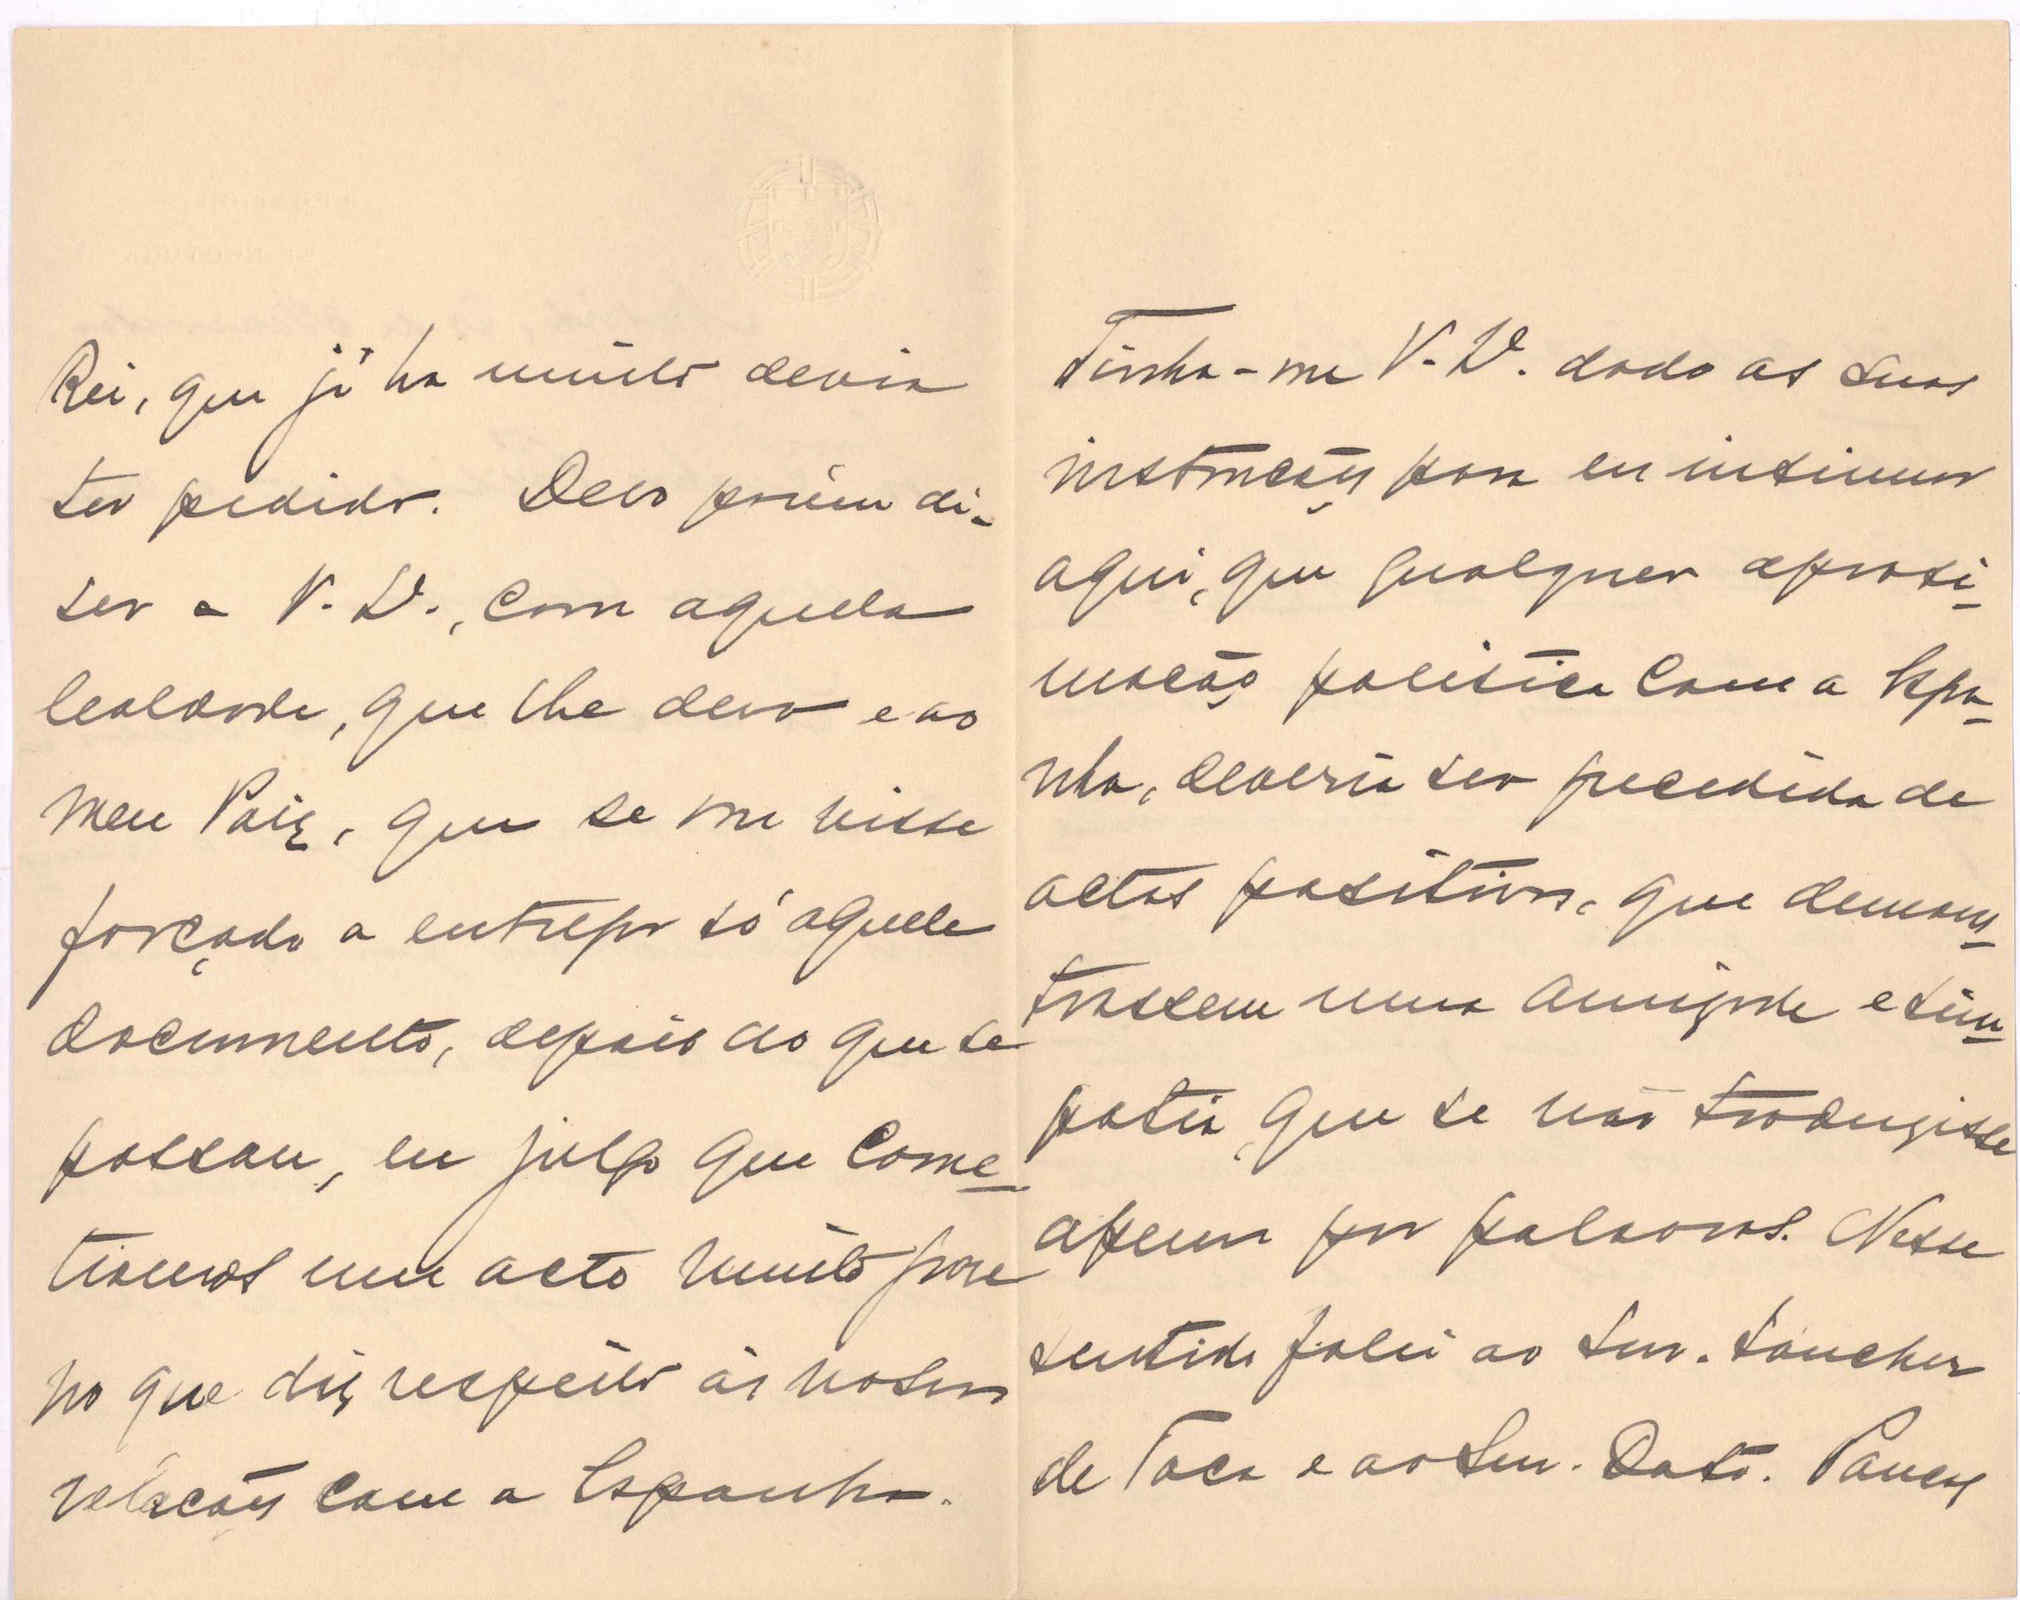 Rei, que já ha muito devia
ter pedido. Devo porém di-
ser a V. , com aquela
lealdade, que lhe devo e ao
meu Paiz, que se me visse
forçado a entregar só aquele
documento, depois do que se
passou, eu julgo que come-
tiamos um acto muito grave
no que diz respeito ás nossas
relações com a Espanha.
Tinha-me V. . dado as suas
instrucções para eu insinuar
aqui, que qualquer aprosi-
mação politica com a Espa-
nha, deveria ser precedida de
actos positivos, que demons-
trassem uma amizade e sim-
patia, que se não traduzisse
apenas por palavras. Nesse
sentido falei ao Snr. Sanchez
de Toca e ao Snr. Dato. Poucos